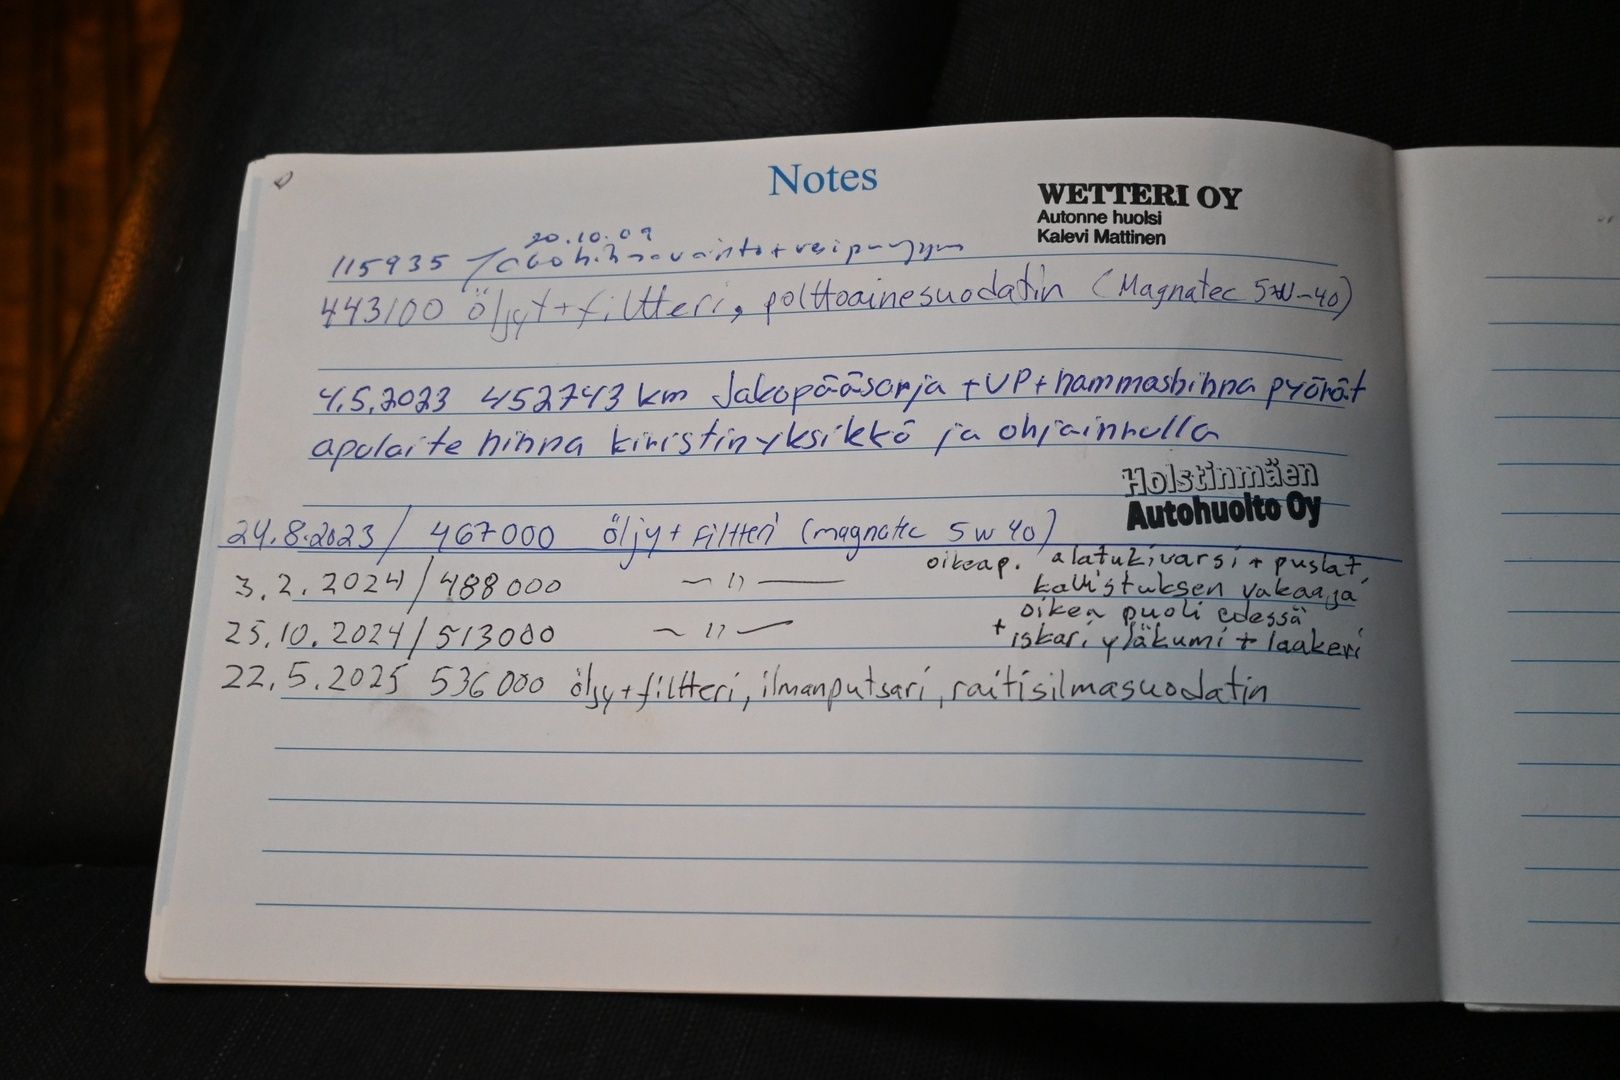 Notes
WETTERI OY
Autonne huolsi
Kalevi Mattinen
20.10.09
115935 Jakohihnavaihto + vesipumppu
443100 öljyt + filtteri, polttoainesuodatin (Magnatec 5W-40)
4.5.2023 452743 km Jakopääsarja + VP + hammashihna pyörät
apulaite hihna kiristinyksikkö ja ohjainrulla
Holstinmäen
Autohuolto Oy
24.8.2023 / 467000 öljy + filtteri (magnatec 5w40)
oikeap. alatukivarsi + puslat,
3.2.2024 / 488000 ~ 11 —
kallistuksen vakaaja
oikea puoli edessä
25.10.2024 / 513000 ~ 11 —
+ iskari yläkumi + laakeri
22.5.2025 536000 öljy + filtteri, ilmanputsari, raitisilmasuodatin